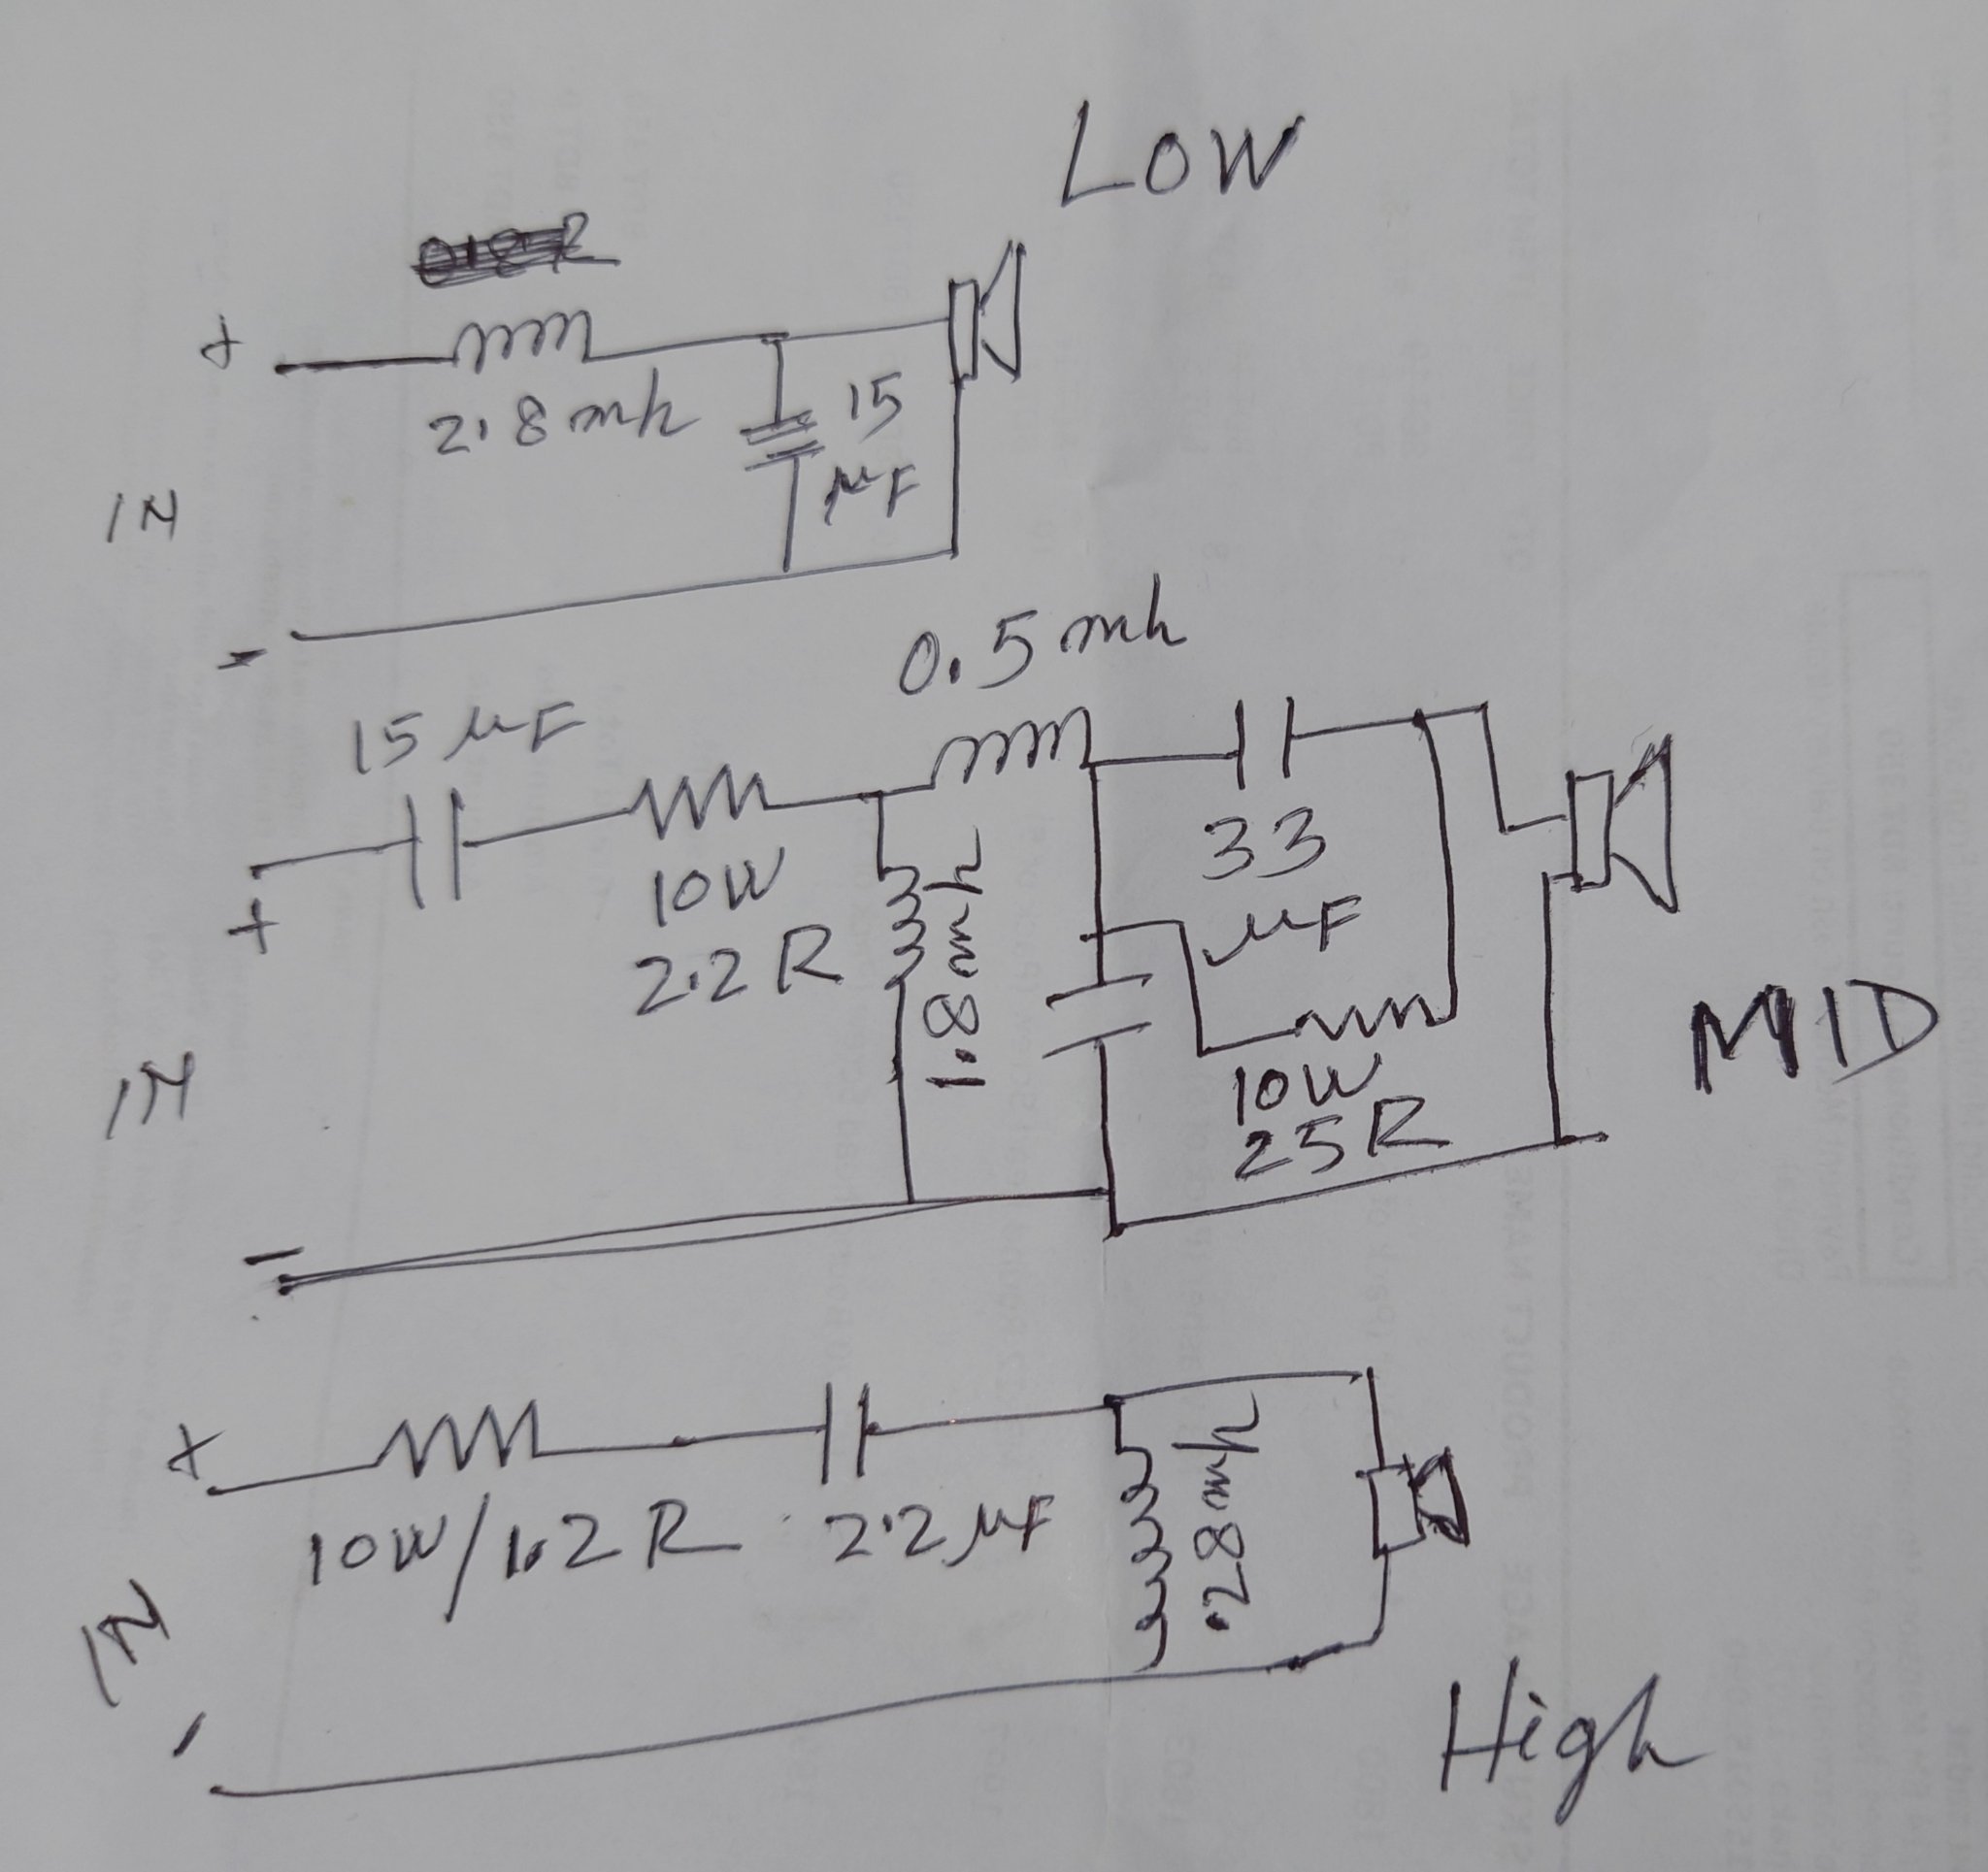 LOW
+
2.8 mh
15
μF
IN
-
0.5 mh
15 μF
+
10W
2.2 R
1.8 mh
33
μF
10W
25R
MID
IN
-
+
10W/1.2 R
2.2 μF
.28 mh
IN
-
High